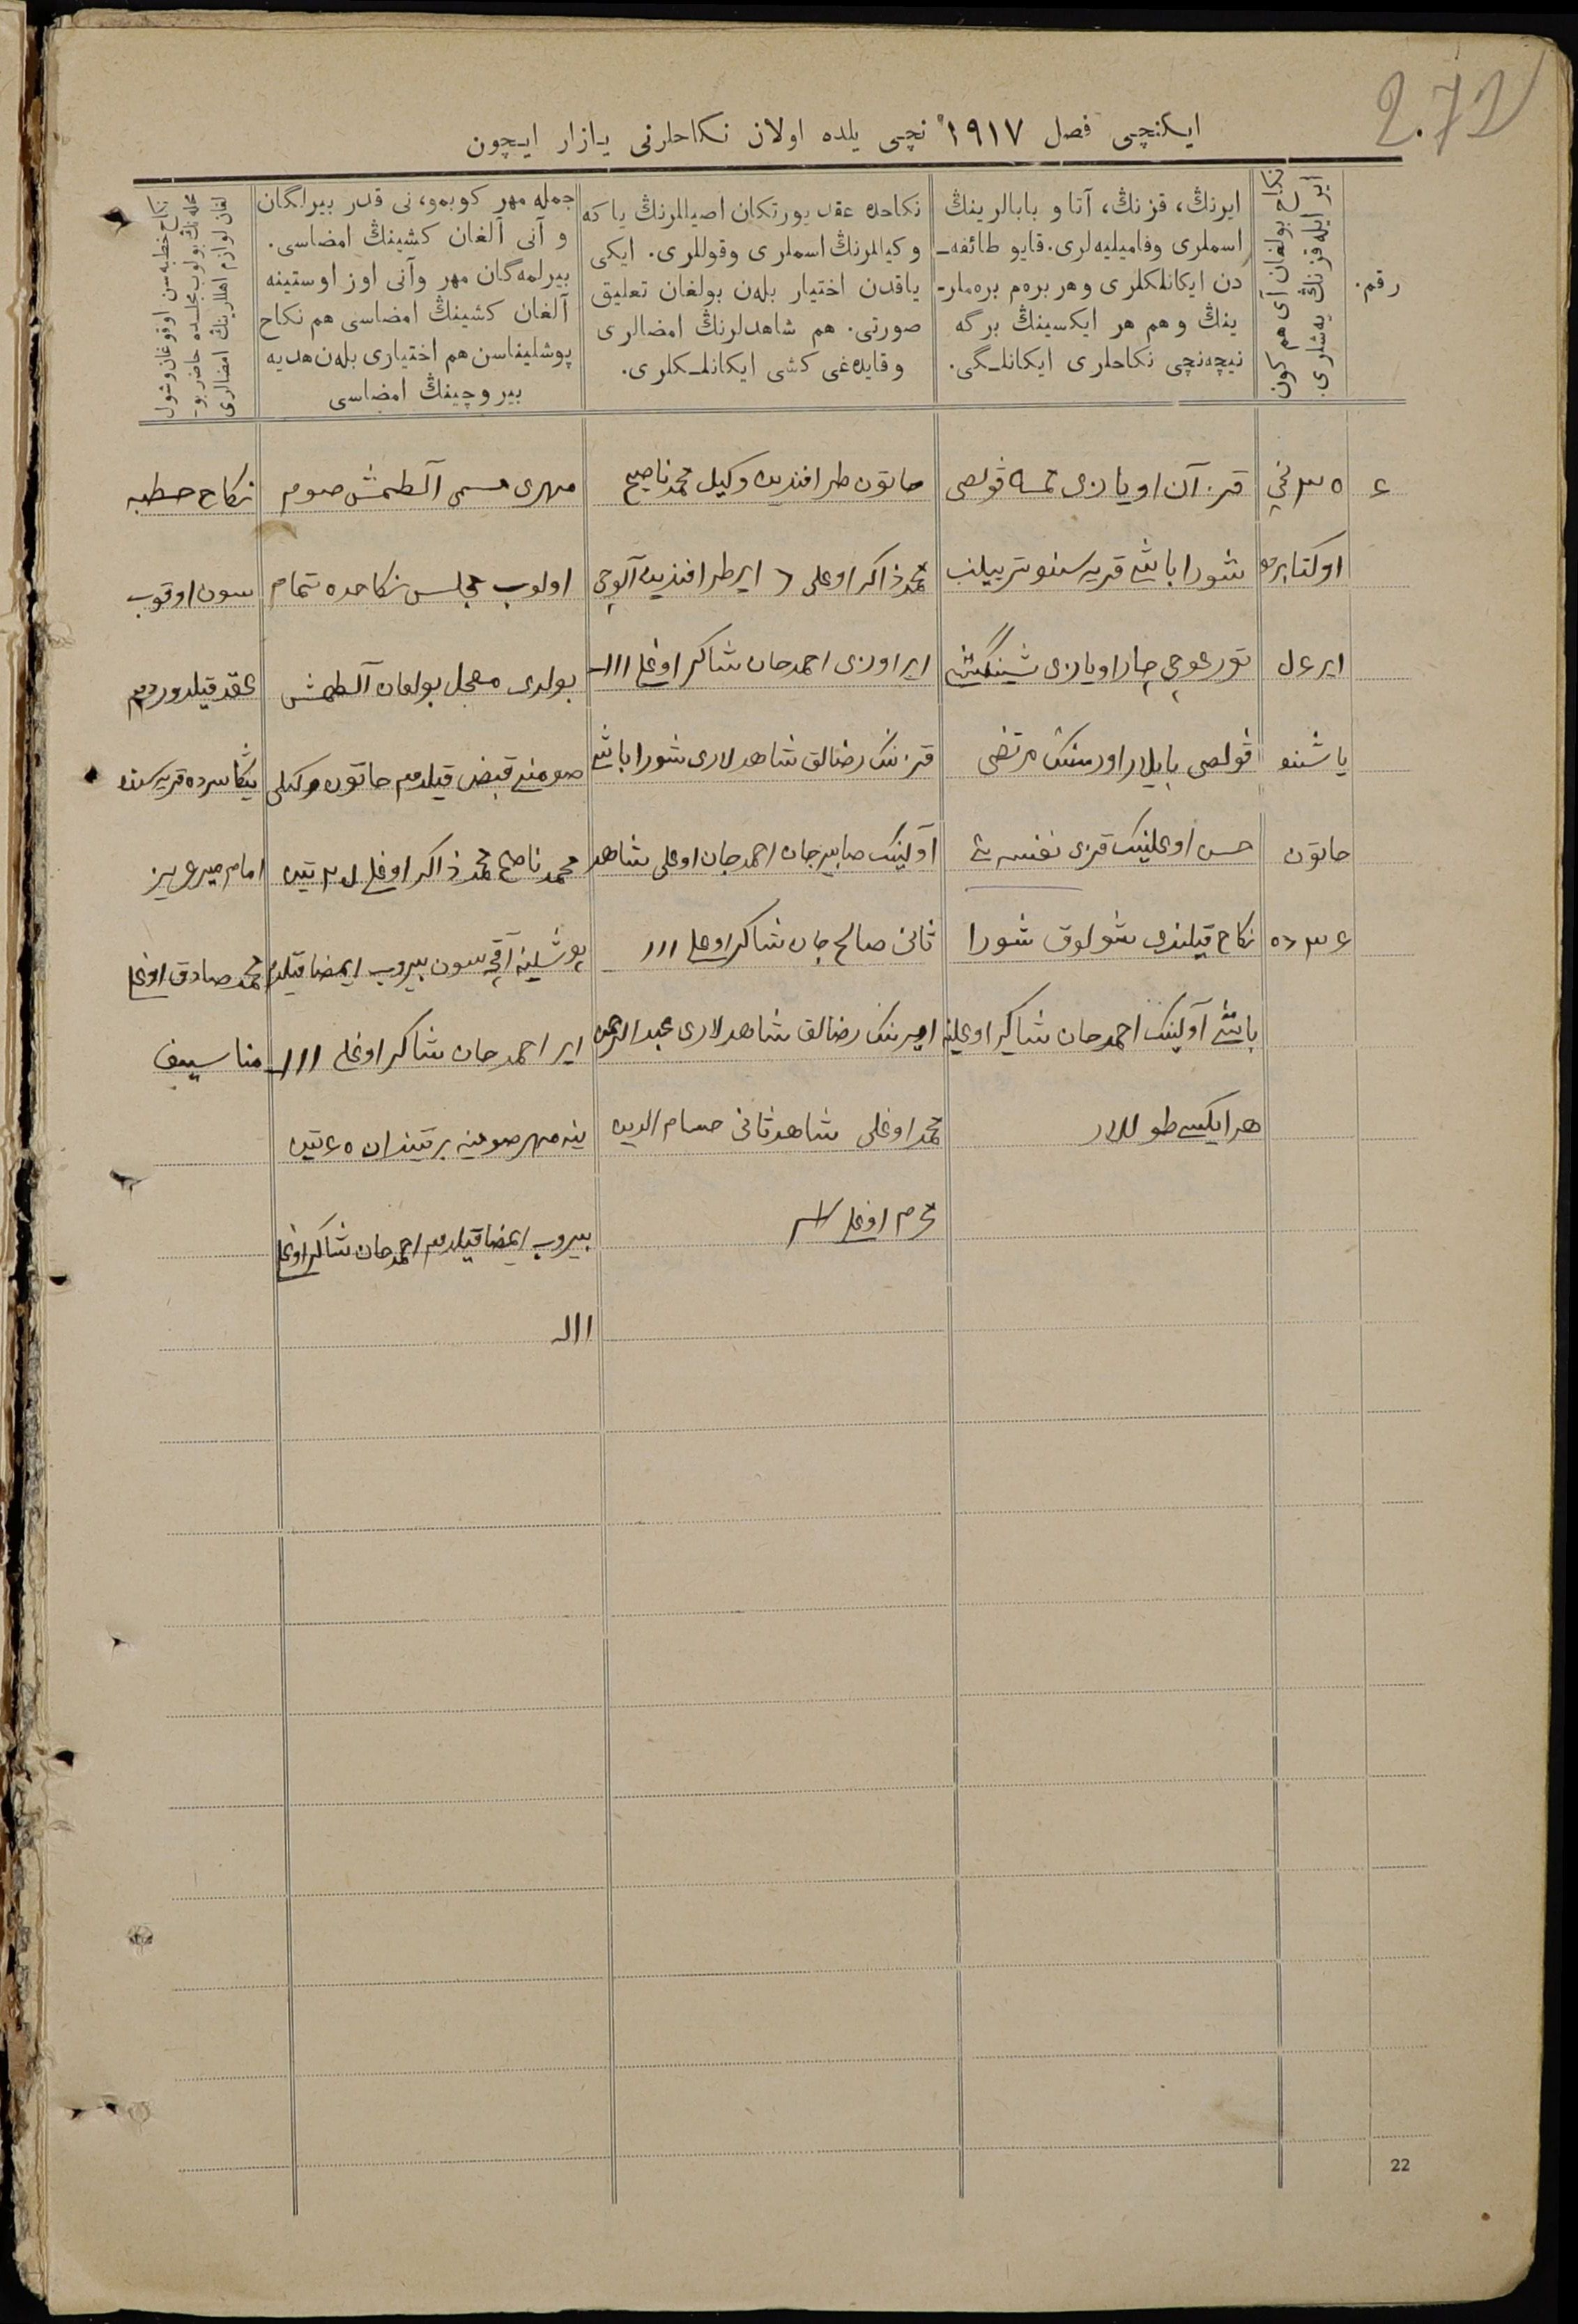 272
ایکنچی فصل ۱۹۱۷ نچی یلده اولان نکاحلرنی یازار ایچون
رقم.
نکاح بولغان آی هم کون
ایر ایله قزنڭ یه‌شلری.
ایرنڭ، قزنڭ، آتا و بابالرینڭ
اسملری وفامیلیه‌لری. قایو طائفه‌ـ
دن ایکانلکلری وهر بره‌م بره‌ملرـ
ینڭ وهم هر ایکسینڭ برگه
نیچه‌نچی نکاحلری ایکانلـگی.
نکاحده عقد یورتکان اصیللرنڭ یا که
وکیللرنڭ اسملری وقوللری. ایکی
یاقدن اختیار بله‌ن بولغان تعلیق
صورتی. هم شاهدلرنڭ امضالری
وقایده‌غی کشی ایکانلـکلری.
جمله مهر کوبمو، نی قدر بیرلگان
و آنی آلغان کشینڭ امضاسی.
بیرلمه‌گان مهر وآنی اوز اوستینه
آلغان کشینڭ امضاسی هم نکاح
پوشلیناسن هم اختیاری بله‌ن هدیه
بیروچینڭ امضاسی
نکاح خطبه‌سن اوقوغان وشول
محله‌نڭ بولوب مجلسده حاضر بوـ
لغان لوازم اهللرینڭ امضالری
۴
۳۵ نچی
اوکتابرده
ایر ۴۰
یاشنو
خاتون
۳۴ ده
قزآن اویازی قولصی
شورا باشی قریه‌سنو تربیلنب
تورغوچی چار اویازی
قولصی بایلار اورسنڭ مرتضی
حسن اوغلینک قزی نفیسه نی
نکاح قیلندی شولوق شورا
باشی آولینک احمدجان شاکر اوغلینه
هر ایکسی طوللار
خاتون طرافندین وکیل محمد ناصح
محمد ذاکر اوغلی ایر طرافندین آلوچی
ایر اوزی احمدجان شاکر اوغلی ااا
قزننک رضالق شاهدلاری شورا باشی
آولینک صابیرجان احمدجان اوغلی شاهد
ثانی صالح جان شاکر اوغلی ااا
ایرننک رضالق شاهدلاری عبدالرحمن
محمد اوغلی شاهد ثانی حسام الدین
محرم اوغلی
مهری مسمی آلطمش صوم
اولوب مجلس نکاحده تمام
بولدی معجل بولغان آلطمش
صومنی قبض قیلدم خاتون وکیلی
محمد ناصح محمد ذاکر اوغلی ۳۰ تین
پوشلینه آقچه‌سون بیروب ایمضا قیلدم
ایر احمدجان شاکر اوغلی ااا
ینه مهر صومینه بر تیندان ۴۵ تین
بیروب ایمضا قیلدم احمدجان شاکر اوغلی
ااا
نکاح خطبه
سون اوقوب
عقد قیلدوردم
یڭا سرده قریه‌سنڭ
امام میرعزیز
محمد صادق اوغلی
مناسیپف
22